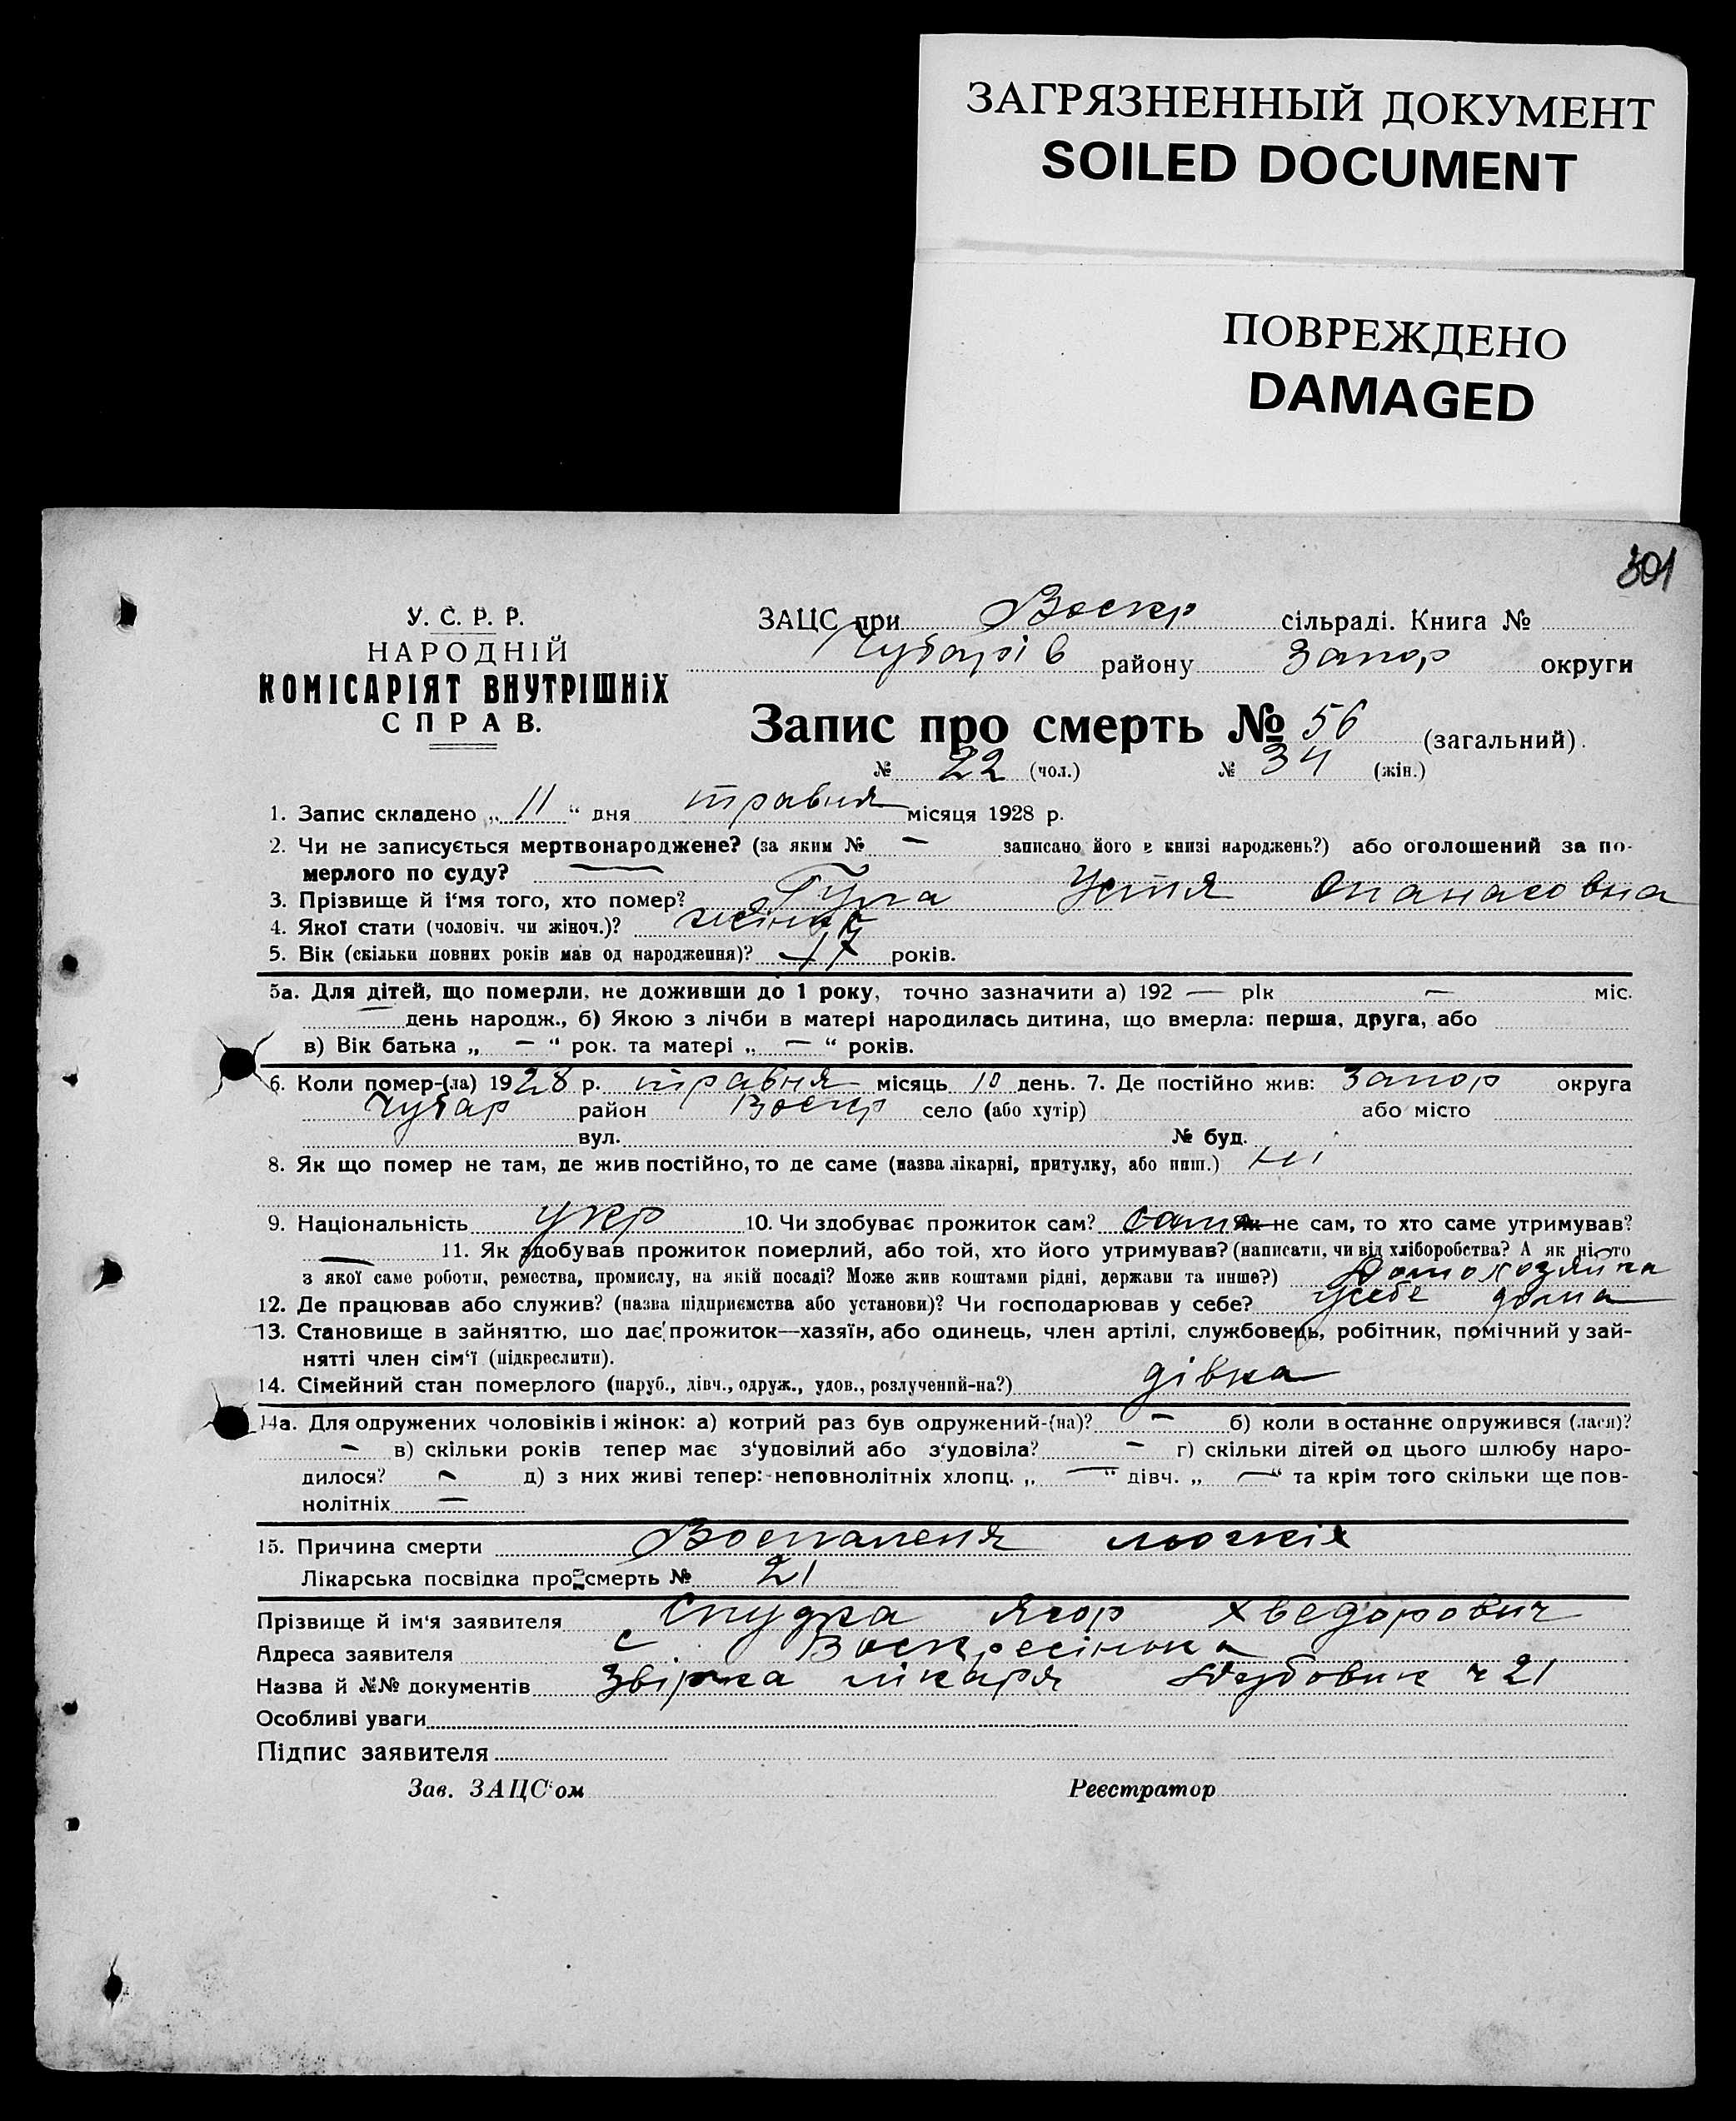 ЗАГРЯЗНЕННЫЙ ДОКУМЕНТ
SOILED DOCUMENT
ПОВРЕЖДЕНО
DAMAGED
301
У. С. Р. Р.
НАРОДНІЙ
КОМІСАРІЯТ ВНУТРІШНІХ
СПРАВ.
ЗАЦС при Воскр сільраді. Книга №
Чубарів району Запор округи
Запис про смерть № 56 (загальний).
№ 22 (чол.) № 34 (жін.)
1. Запис складено „ 11 “ дня травня місяця 1928 р.
2. Чи не записується мертвонароджене? (за яким № — записано його в книзі народжень?) або оголошений за по-
мерлого по суду? —
3. Прізвище й і‘мя того, хто помер? Устя Опанасовна
4. Якої стати (чоловіч. чи жіноч.)?
5. Вік (скільки повних років мав од народження)? 17 років.
5а. Для дітей, що померли, не доживши до 1 року, точно зазначити а) 192 — рік — міс.
— день народж., б) Якою з лічби в матері народилась дитина, що вмерла: перша, друга, або
в) Вік батька „ — “ рок. та матері „ — “ років.
6. Коли помер-(ла) 1928 р. травня місяць 10 день. 7. Де постійно жив: Запор округа
Чубар район Воскр село (або хутір) або місто
вул. № буд.
8. Як що помер не там, де жив постійно, то де саме (назва лікарні, притулку, або инш.)
9. Національність укр 10. Чи здобуває прожиток сам? сама не сам, то хто саме утримував?
— 11. Як здобував прожиток померлий, або той, хто його утримував? (написати, чи від хліборобства? А як ні, то
з якої саме роботи, ремества, промислу, на якій посаді? Може жив коштами рідні, держави та инше?) Домохозяйка
12. Де працював або служив? (назва підприємства або установи)? Чи господарював у себе? у себе дома
13. Становище в зайняттю, що дає прожиток—хазяїн, або одинець, член артілі, службовець, робітник, помічний у зай-
нятті член сім‘ї (підкреслити).
14. Сімейний стан померлого (паруб., дівч., одруж., удов., розлучений-на?) дівка
14а. Для одружених чоловіків і жінок: а) котрий раз був одружений-(на)? — б) коли в останнє одружився (лася)?
— в) скільки років тепер має з‘удовілий або з‘удовіла? — г) скільки дітей од цього шлюбу наро-
дилося? — д) з них живі тепер: неповнолітніх хлопц. „ — “ дівч. „ — “ та крім того скільки ще пов-
нолітніх —
15. Причина смерти Воспаленя льогкіх
Лікарська посвідка про смерть № 21
Прізвище й ім‘я заявителя Ягор Хведорович
Адреса заявителя с Воскресінька
Назва й №№ документів лікаря ч 21
Особливі уваги
Підпис заявителя
Зав. ЗАЦС‘ом Реєстратор